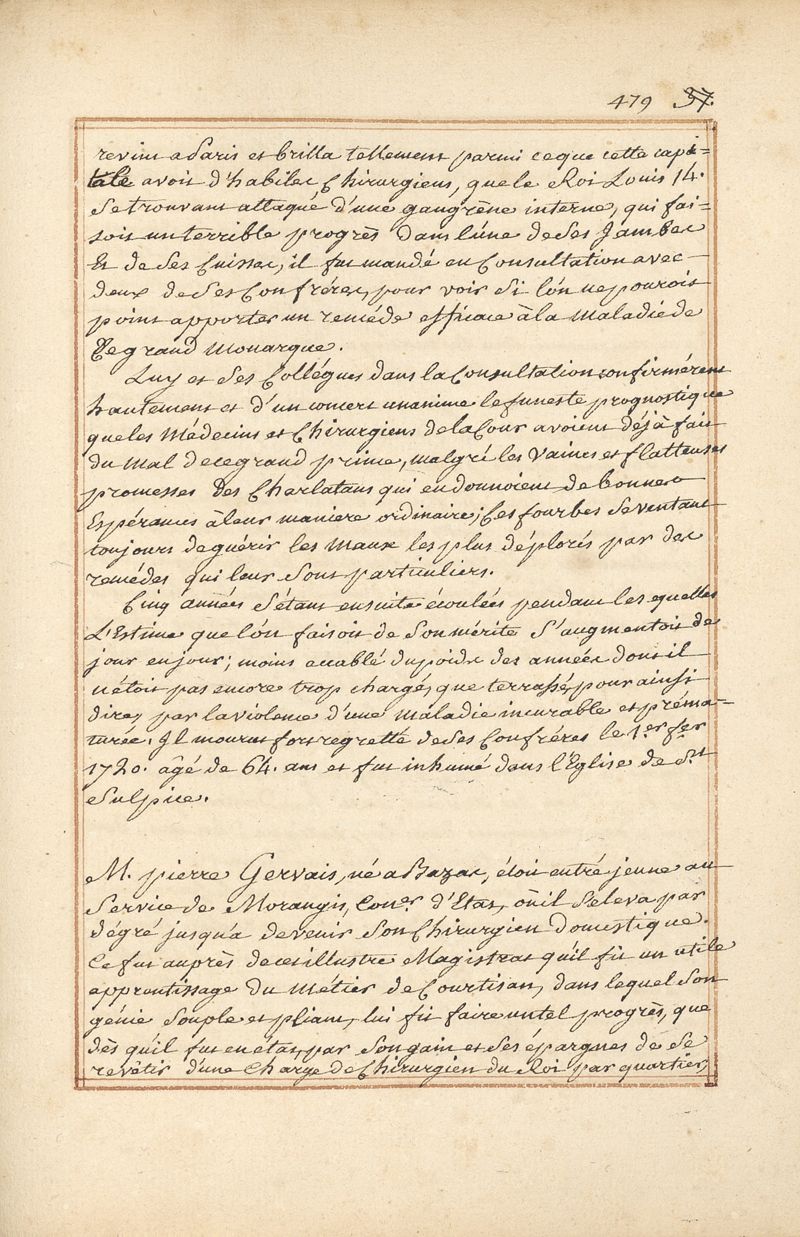 479 37.
revint a Paris et brilla tellement parmi ce que cette capi=
tale avoit d'habiles Chirurgiens, que le Roi Louis 14.
Se trouvant attaqué d'une gangrène interne, qui fai=
soit un terrible progrès dans l'une de Ses Jambes
Et de Ses Cuisses, il fut mandé en Consultation avec
deux de Ses Confréres, pour voir Si l'on ne pouroit
point apporter un reméde efficace à la Maladie de
Ce grand Monarque.
Luy et Ses Collégues dans la Consultation confirmérent
hautement et d'un concert unanime le funeste prognostique
que les Médecins et Chirurgiens de la Cour avoient déjà fait
du Mal de ce grand prince, malgré les Vaines et flatteuses
promesses des Charlatans qui en donnoient de bonnes
Espérances à leur maniere ordinaire; Ces fourbes Se ventant
toujours de guérir les Maux les plus déplorés par des
remédes qui leur Sont particuliers.
Cinq années S'étant ensuite écoulées pendant les quelles
L'Estime que l'on faisoit de Son mérite S'augmentoit de
jour en jour; moins accablé du poids des années dont il
n'étoit pas encore trop chargé, que terrassé, pour ainsi
dire, par la violence d'une Maladie incurable et préma=
turée. Il mourut fort regretté de Ses Confréres le 1er. fer
1720. âgé de 64. ans et fut inhumé dans l'Eglise de St.
Sulpice.
M. pierre Gervais, né a Bazas, étoit entré jeune au
Service de Morangis, Coner. d'Etat, où il S'eleva par
dégré jusqu'a devenir Son Chirurgien domestique.
Ce fut auprès de cet illustre Magistrat qu'il fit un utile
apprentissage du Métier de Courtisan, dans lequel Son
génie Souple et pliant, lui fit faire un tel progrès, que
dès qu'il fut en état, par Son gain et Ses épargnes de Se
revêtir d'une Charge de Chirurgien du Roi par quartier,